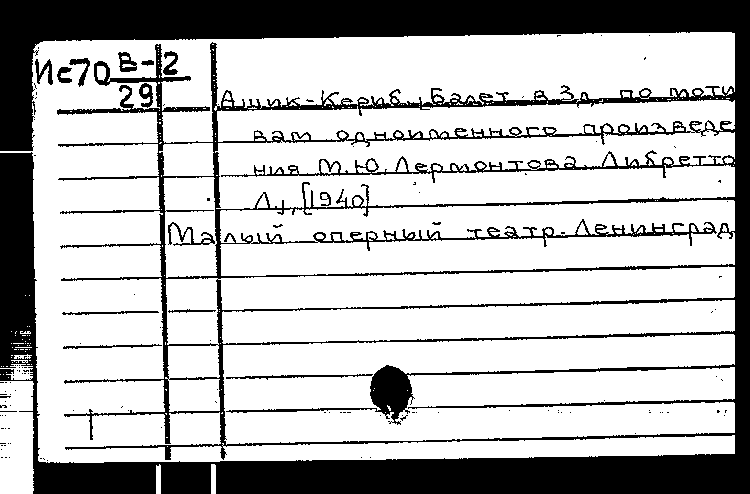 Ис70 В-2
29
Ашик-Кериб. Балет в 3 д. по моти
вам одноименного произведе
ния М.Ю. Лермонтова. Либретто
Л., [1940]
Малый оперный театр. Ленинград